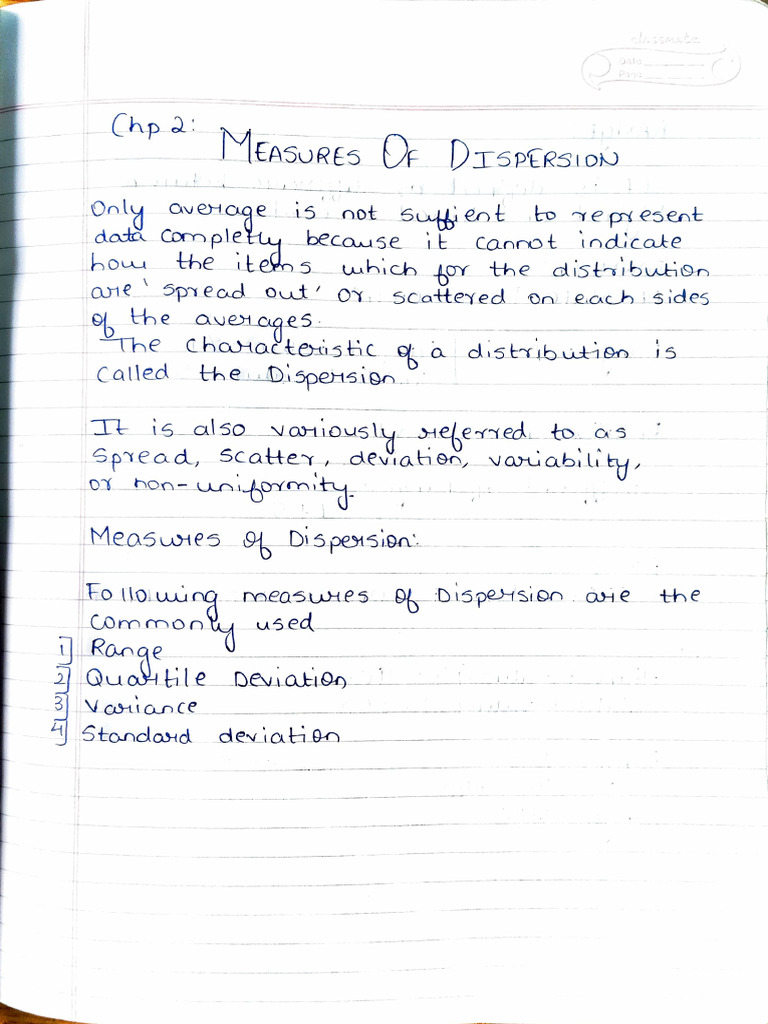 classmate
Date
Page
Chp 2:
MEASURES OF DISPERSION
Only average is not suffient to represent
data completly because it cannot indicate
how the items which for the distribution
are 'spread out' or scattered on each sides
of the averages.
The characteristic of a distribution is
called the Dispersion
It is also variously referred to as :
Spread, scatter, deviation, variability,
or non-uniformity.
Measures of Dispersion:
Following measures of Dispersion are the
commonly used
1] Range
2] Quartile Deviation
3] Variance
4] Standard deviation